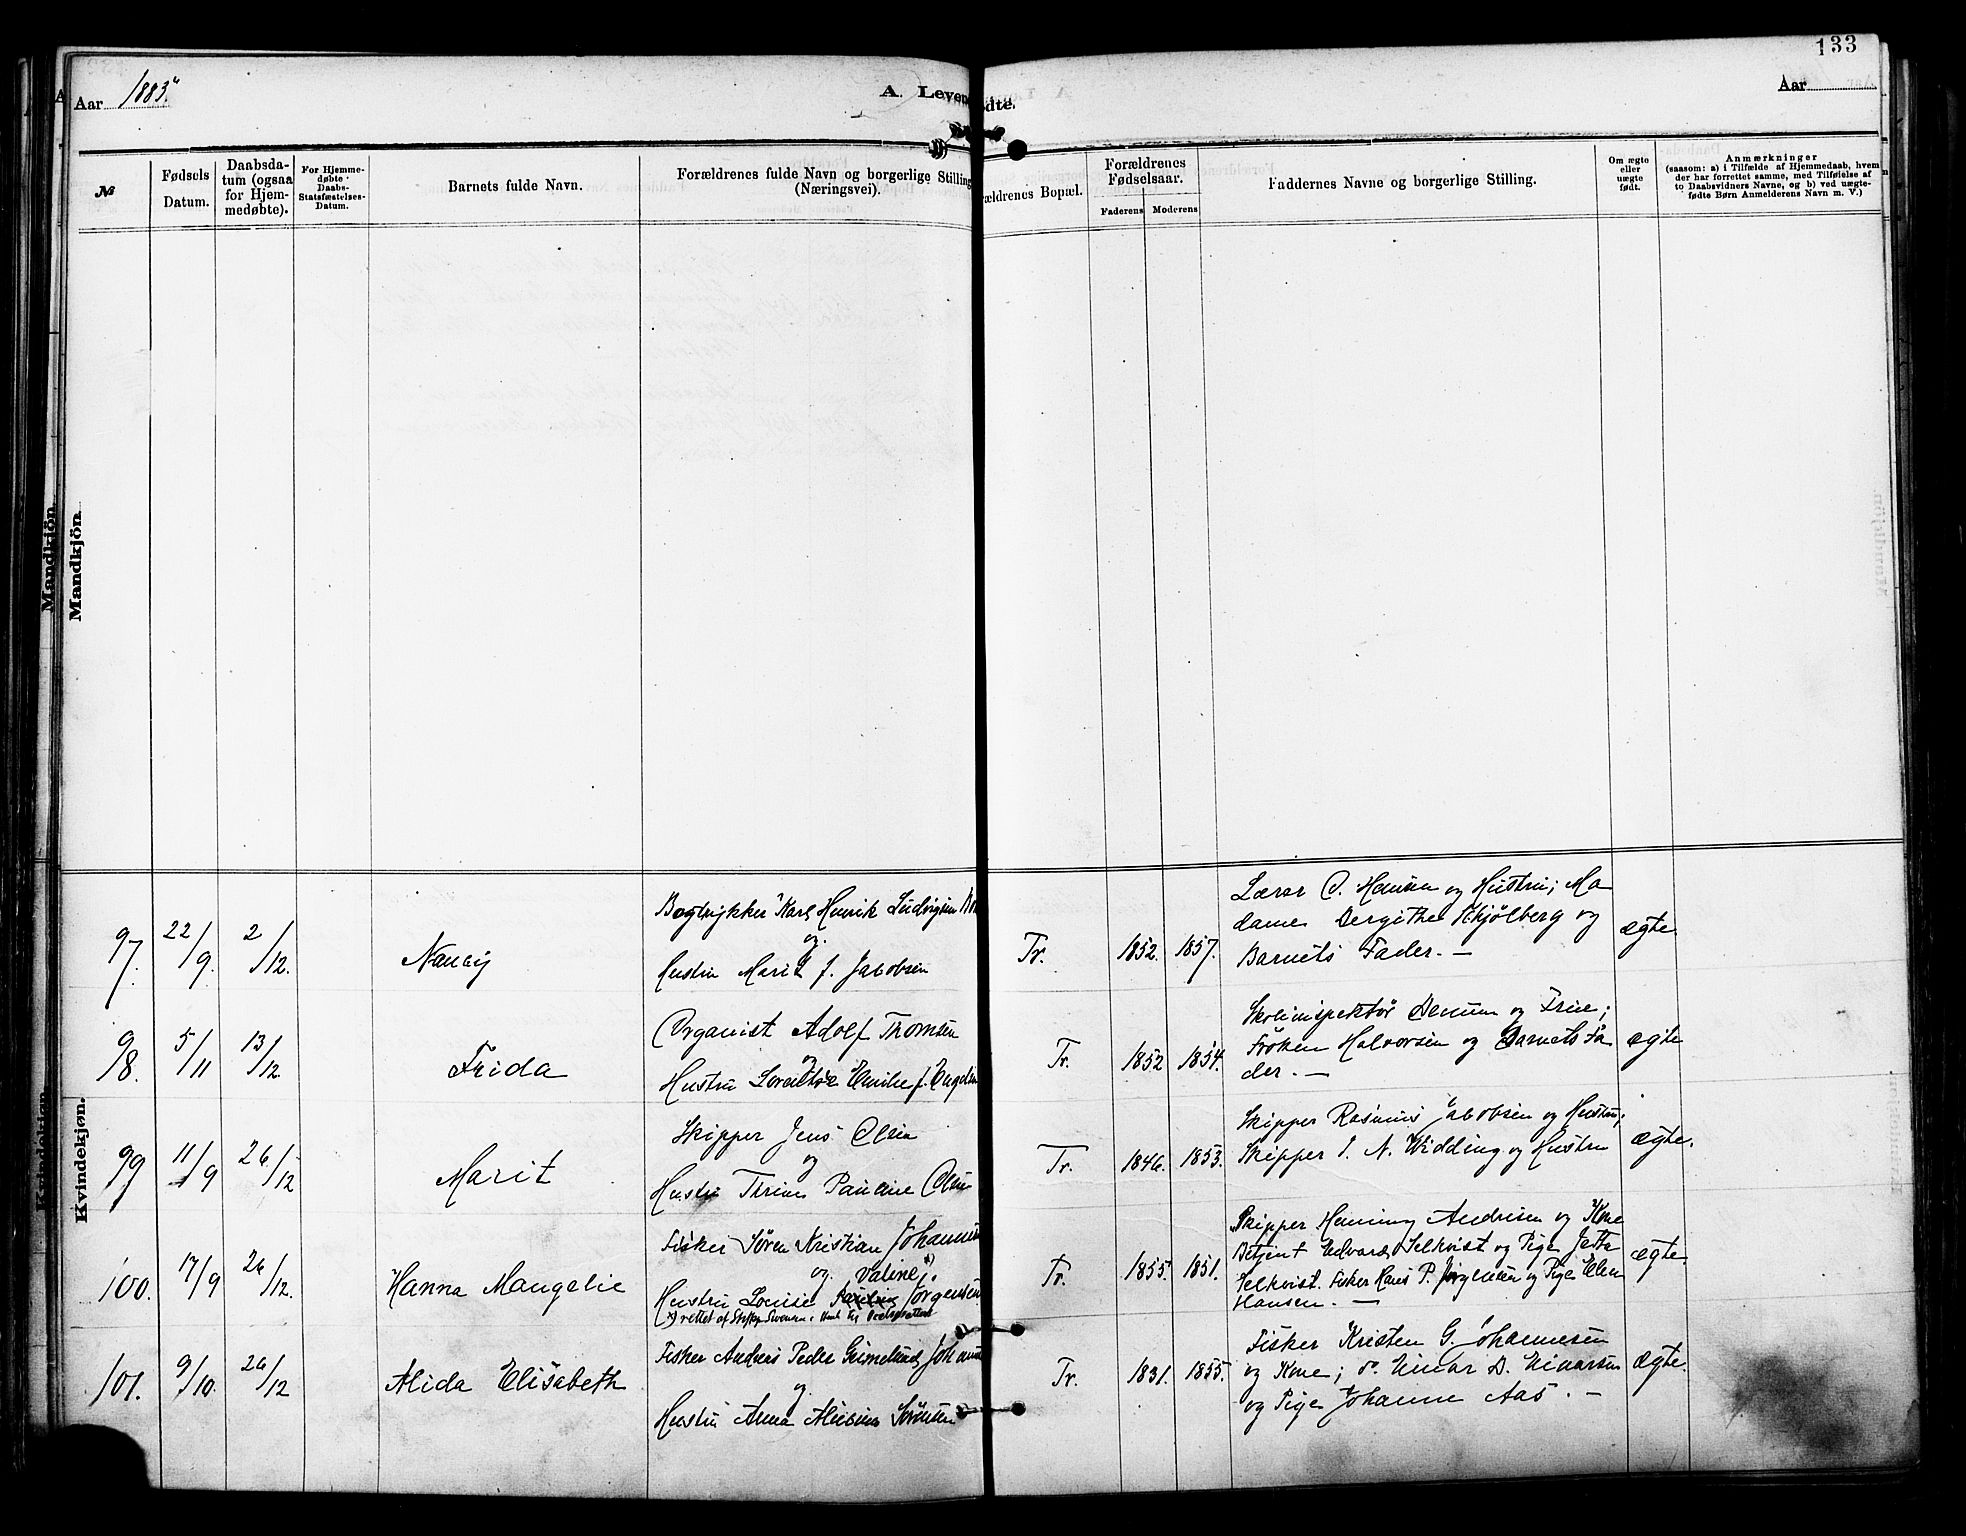 133
Aar 1883.
A. Leven
dte.
Aar
№
Fødsels Datum.
Daabsdatum (ogsaa for Hjemmedøbte).
For Hjemmedøbte Daabs-Statsfæstelses-Datum.
Barnets fulde Navn.
Forældrenes fulde Navn og borgerlige Stilling (Næringsvei).
ældrenes Bopæl.
Forældrenes Fødselsaar.
Faderens
Moderens
Faddernes Navne og borgerlige Stilling.
Om ægte eller uægte født.
Anmærkninger
(saasom: a) i Tilfælde af Hjemmedaab, hvem
der har forrettet samme, med Tilføielse af
to Daabsvidners Navne, og b) ved uægte-
fødte Børn Anmelderens Navn m. V.)
Mandkjön.
Mandkjön.
Kvindekjøn.
Kvindekjøn.
97. 22/9. 2/12. Nancy
Bogtrykker Karl Henrik Ludvigsen
og
Hustru Marit f. Jacobsen
Tr. 1852. 1857.
Lærer O. Hansen og Hustru; Ma
dame Bergithe Khjølberg og
Barnets Fader. —
ægte.
98. 5/11 13/12 Frida
Organist Adolf Thomsen
og
Hustru Emilie f.
Tr. 1852 1854.
Skoleinspektør og Frue;
Frøken Halvorsen og Barnets Fa
der. —
ægte
99 11/9 26/12 Marit
Skipper Jens Olsen
og
Hustru Trine Pauline Olsen
Tr. 1846. 1853.
Skipper Rasmus Jakobsen og Hustru;
Skipper I. N. Widding og Hustru
ægte.
100. 17/9 26/12. Hanna Mangelie
Fisker Søren Kristian Johannes
og Valine x)
Hustru Louise Jørgensen
x) rettet af
Tr. 1855. 1851.
Skipper Henning Andresen og Kone
Betjent Edvard Selkvist og Pige Jetta
Selkvist. Fisker Hans P. Jørgensen og Pige Ellen
Hansen. —
ægte.
101. 9/10. 26/12 Alida Elisabeth
Fisker Anders Peder Grimelund Johannes
og
Hustru Anna Sørensen
Tr. 1831. 1855.
Fisker Kristen G. Johannesen
og Kone; do. Einar D. Einarsen
og Pige Johanne Aas. —
ægte.